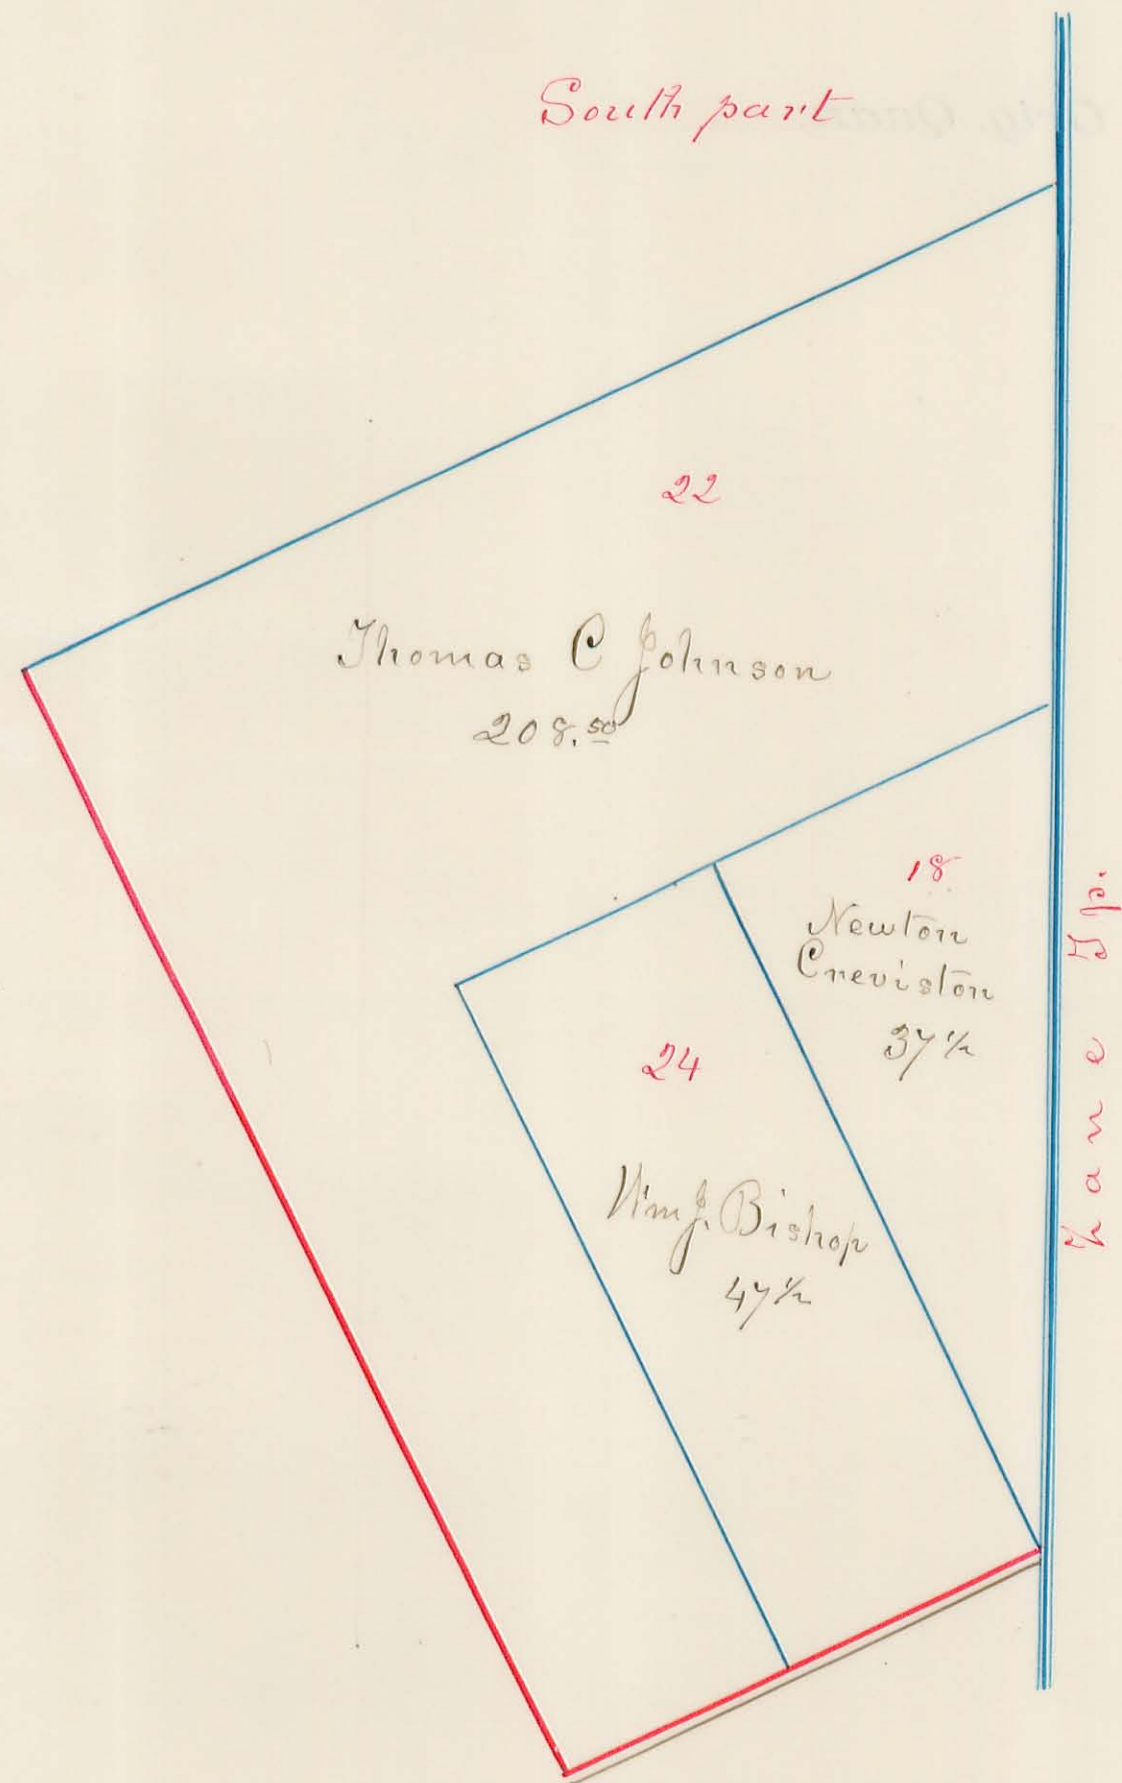 South part
22
Thomas C Johnson
208.50
18
Newton
Creviston
37 1/2
24
Wm J. Bishop
47 1/2
Zane Tp.